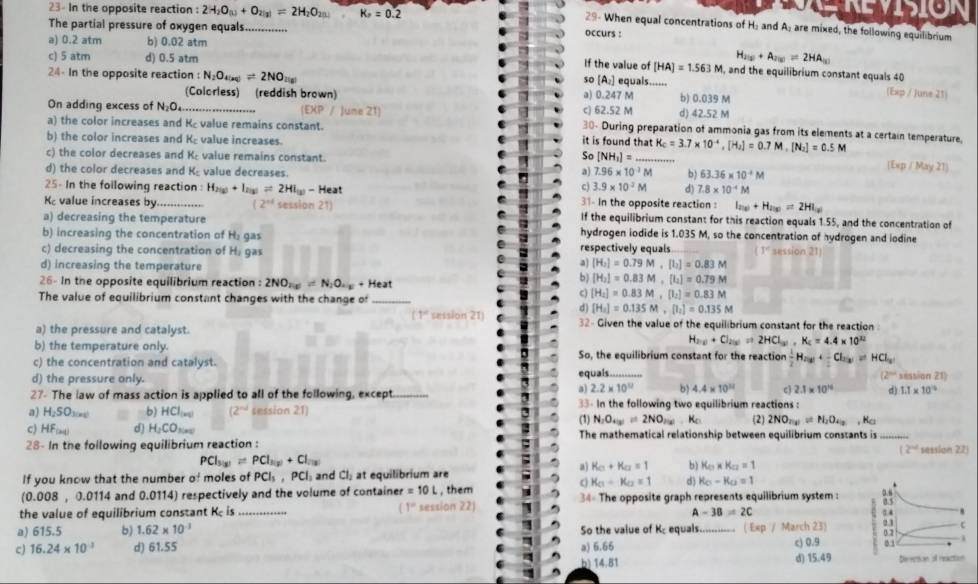 23- In the opposite reaction : 2H₂O(l) + O₂(g) ⇌ 2H₂O₂(l) , Kₚ = 0.2
The partial pressure of oxygen equals.............
a) 0.2 atm b) 0.02 atm
c) 5 atm d) 0.5 atm
24- In the opposite reaction : N₂O₄(aq) ⇌ 2NO₂(g)
(Colorless) (reddish brown)
On adding excess of N₂O₄..................... (EXP / June 21)
a) the color increases and Kc value remains constant.
b) the color increases and Kc value increases.
c) the color decreases and Kc value remains constant.
d) the color decreases and Kc value decreases.
25- In the following reaction : H₂(g) + I₂(g) ⇌ 2HI(g) – Heat
Kc value increases by............. ( 2nd session 21)
a) decreasing the temperature
b) increasing the concentration of H₂ gas
c) decreasing the concentration of H₂ gas
d) increasing the temperature
26- In the opposite equilibrium reaction : 2NO₂(g) ⇌ N₂O₄(g) + Heat
The value of equilibrium constant changes with the change of ..........
( 1st session 21)
a) the pressure and catalyst.
b) the temperature only.
c) the concentration and catalyst.
d) the pressure only.
27- The law of mass action is applied to all of the following, except...........
a) H₂SO₃(aq) b) HCl(aq) (2nd session 21)
c) HF(aq) d) H₂CO₃(aq)
28- In the following equilibrium reaction :
PCl₅(g) ⇌ PCl₃(g) + Cl₂(g)
If you know that the number of moles of PCl₅ , PCl₃ and Cl₂ at equilibrium are
(0.008 , 0.0114 and 0.0114) respectively and the volume of container = 10 L , them
the value of equilibrium constant Kc is .............. ( 1st session 22)
a) 615.5 b) 1.62 × 10⁻³
c) 16.24 × 10⁻³ d) 61.55
REVISION
29- When equal concentrations of H₂ and A₂ are mixed, the following equilibrium
occurs :
H₂(g) + A₂(g) ⇌ 2HA(g)
If the value of [HA] = 1.563 M, and the equilibrium constant equals 40
so [A₂] equals...... (Exp / June 21)
a) 0.247 M b) 0.039 M
c) 62.52 M d) 42.52 M
30- During preparation of ammonia gas from its elements at a certain temperature,
it is found that Kc = 3.7 × 10⁻⁴ , [H₂] = 0.7 M , [N₂] = 0.5 M
So [NH₃] = ............. (Exp / May 21)
a) 7.96 × 10⁻³ M b) 63.36 × 10⁻⁶ M
c) 3.9 × 10⁻² M d) 7.8 × 10⁻⁴ M
31- In the opposite reaction : I₂(g) + H₂(g) ⇌ 2HI(g)
If the equilibrium constant for this reaction equals 1.55, and the concentration of
hydrogen iodide is 1.035 M, so the concentration of hydrogen and iodine
respectively equals ( 1st session 21)
a) [H₂] = 0.79 M , [I₂] = 0.83 M
b) [H₂] = 0.83 M , [I₂] = 0.79 M
c) [H₂] = 0.83 M , [I₂] = 0.83 M
d) [H₂] = 0.135 M , [I₂] = 0.135 M
32- Given the value of the equilibrium constant for the reaction :
H₂(g) + Cl₂(g) ⇌ 2HCl(g) , Kc = 4.4 × 10³²
So, the equilibrium constant for the reaction ½ H₂(g) + ½ Cl₂(g) ⇌ HCl(g)
equals........... (2nd session 21)
a) 2.2 × 10³² b) 4.4 × 10³² c) 2.1 × 10¹⁶ d) 1.1 × 10¹⁶
33- In the following two equilibrium reactions :
(1) N₂O₄(g) ⇌ 2NO₂(g) , Kc₁ (2) 2NO₂(g) ⇌ N₂O₄(g) , Kc₂
The mathematical relationship between equilibrium constants is .........
( 2nd session 22)
a) Kc₁ + Kc₂ = 1 b) Kc₁ × Kc₂ = 1
c) Kc₁ ÷ Kc₂ = 1 d) Kc₁ – Kc₂ = 1
34- The opposite graph represents equilibrium system :
A + 3B ⇌ 2C
So the value of Kc equals............ ( Exp / March 23)
a) 6.66 c) 0.9
b) 14.81 d) 15.49
0.6
0.5
0.4 B
0.3 C
0.2
0.1 A
Direction of reaction